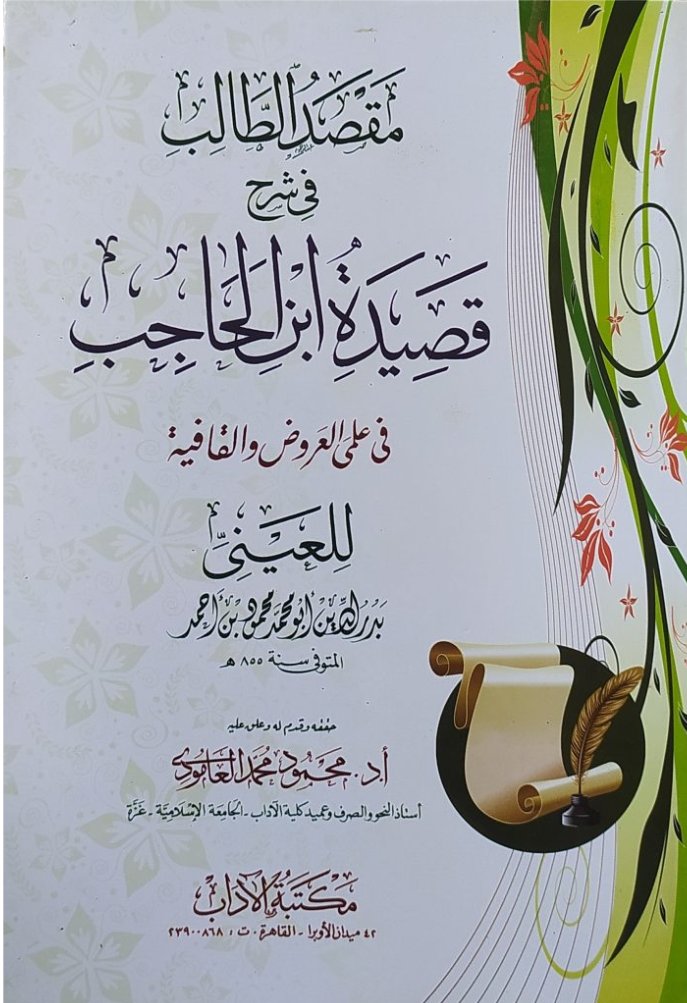 مَقْصَدُ الطَّالِبِ
فِي شَرْحِ
قَصِيدَةِ ابْنِ الْحَاجِبِ
فى علمى العروض والقافية
لِلعَيْنِيِّ
بدر الدين أبو محمد محمود بن أحمد
المتوفى سنة ٨٥٥ هـ
حققه وقدم له وعلق عليه
أ.د. محمود محمد العامودي
أستاذ النحو والصرف وعميد كلية الآداب - الجامعة الإسلامية - غزة
مكتبة الآداب
٤٢ ميدان الأوبرا - القاهرة - ت : ٢٣٩٠٠٨٦٨